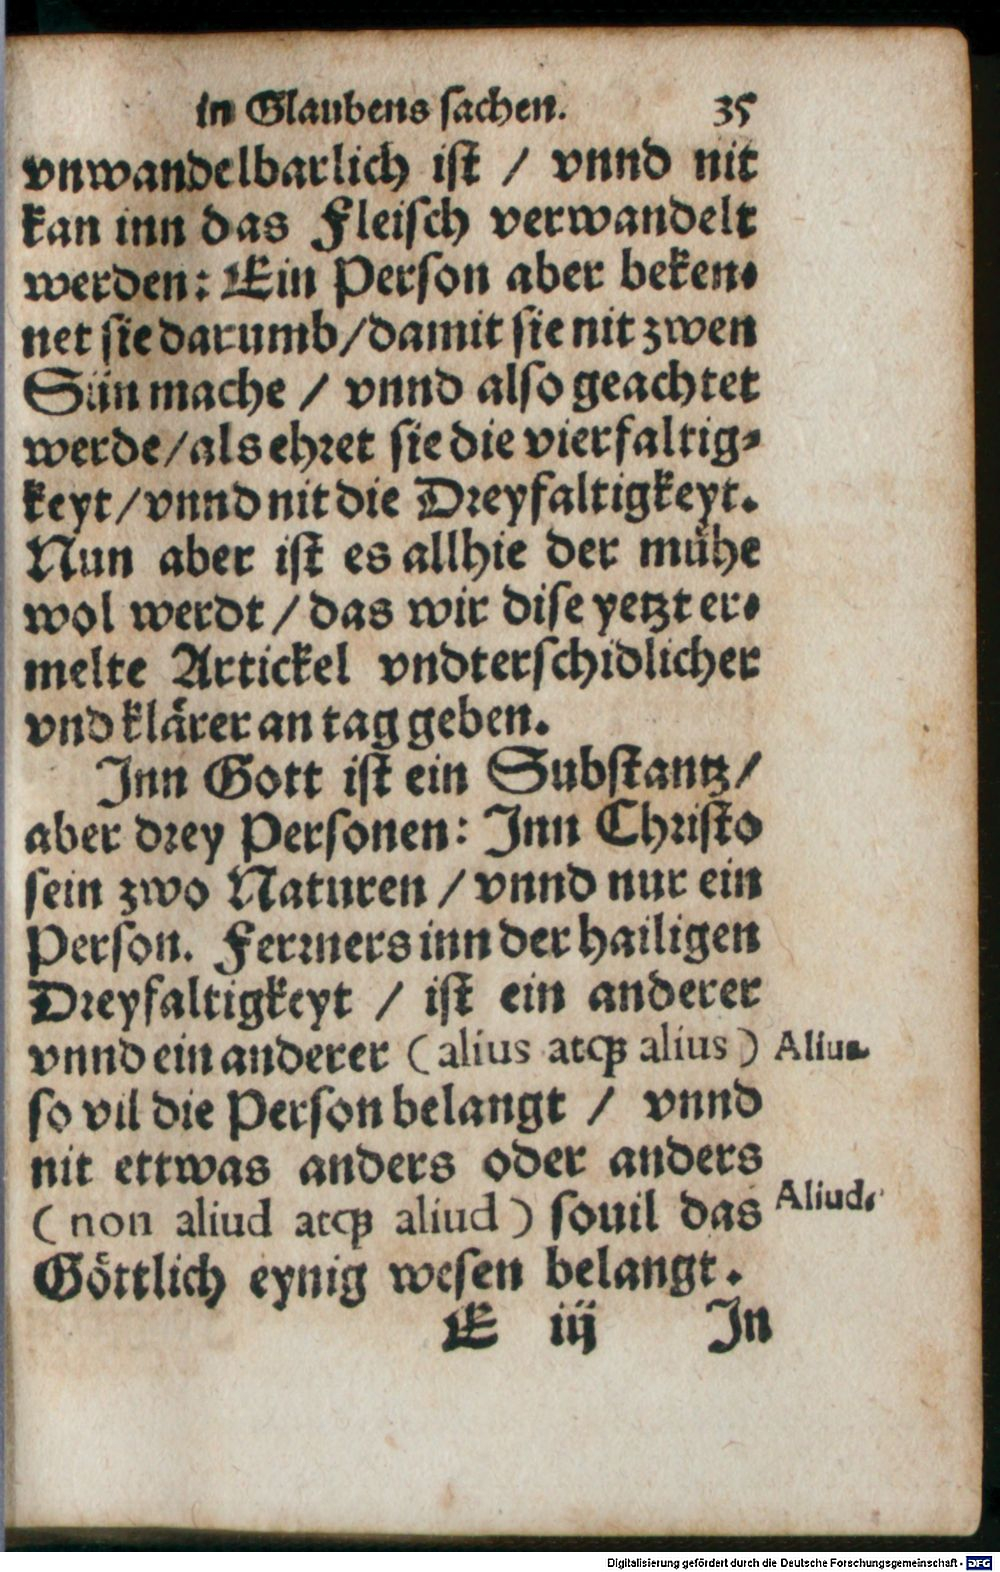 in Glaubens sachen. 35
vnwandelbarlich ist / vnnd nit
kan inn das Fleisch verwandelt
werden: Ein Person aber beken⸗
net sie darumb / damit sie nit zwen
Sün mache / vnnd also geachtet
werde / als ehret sie die vierfaltig⸗
keyt / vnnd nit die Dreyfaltigkeyt.
Nun aber ist es allhie der mühe
wol werdt / das wir dise yetzt er⸗
melte Artickel vndterschidlicher
vnd klärer an tag geben.
Inn Gott ist ein Substantz /
aber drey Personen: Inn Christo
sein zwo Naturen / vnnd nur ein
Person. Ferrners inn der hailigen
Dreyfaltigkeyt / ist ein anderer
vnnd ein anderer (alius atq́; alius) Alius.
so vil die Person belangt / vnnd
nit ettwas anders oder anders
(non aliud atq́; aliud) souil das Aliud.
Göttlich eynig wesen belangt.
E iij In
Digitalisierung gefördert durch die Deutsche Forschungsgemeinschaft - DFG